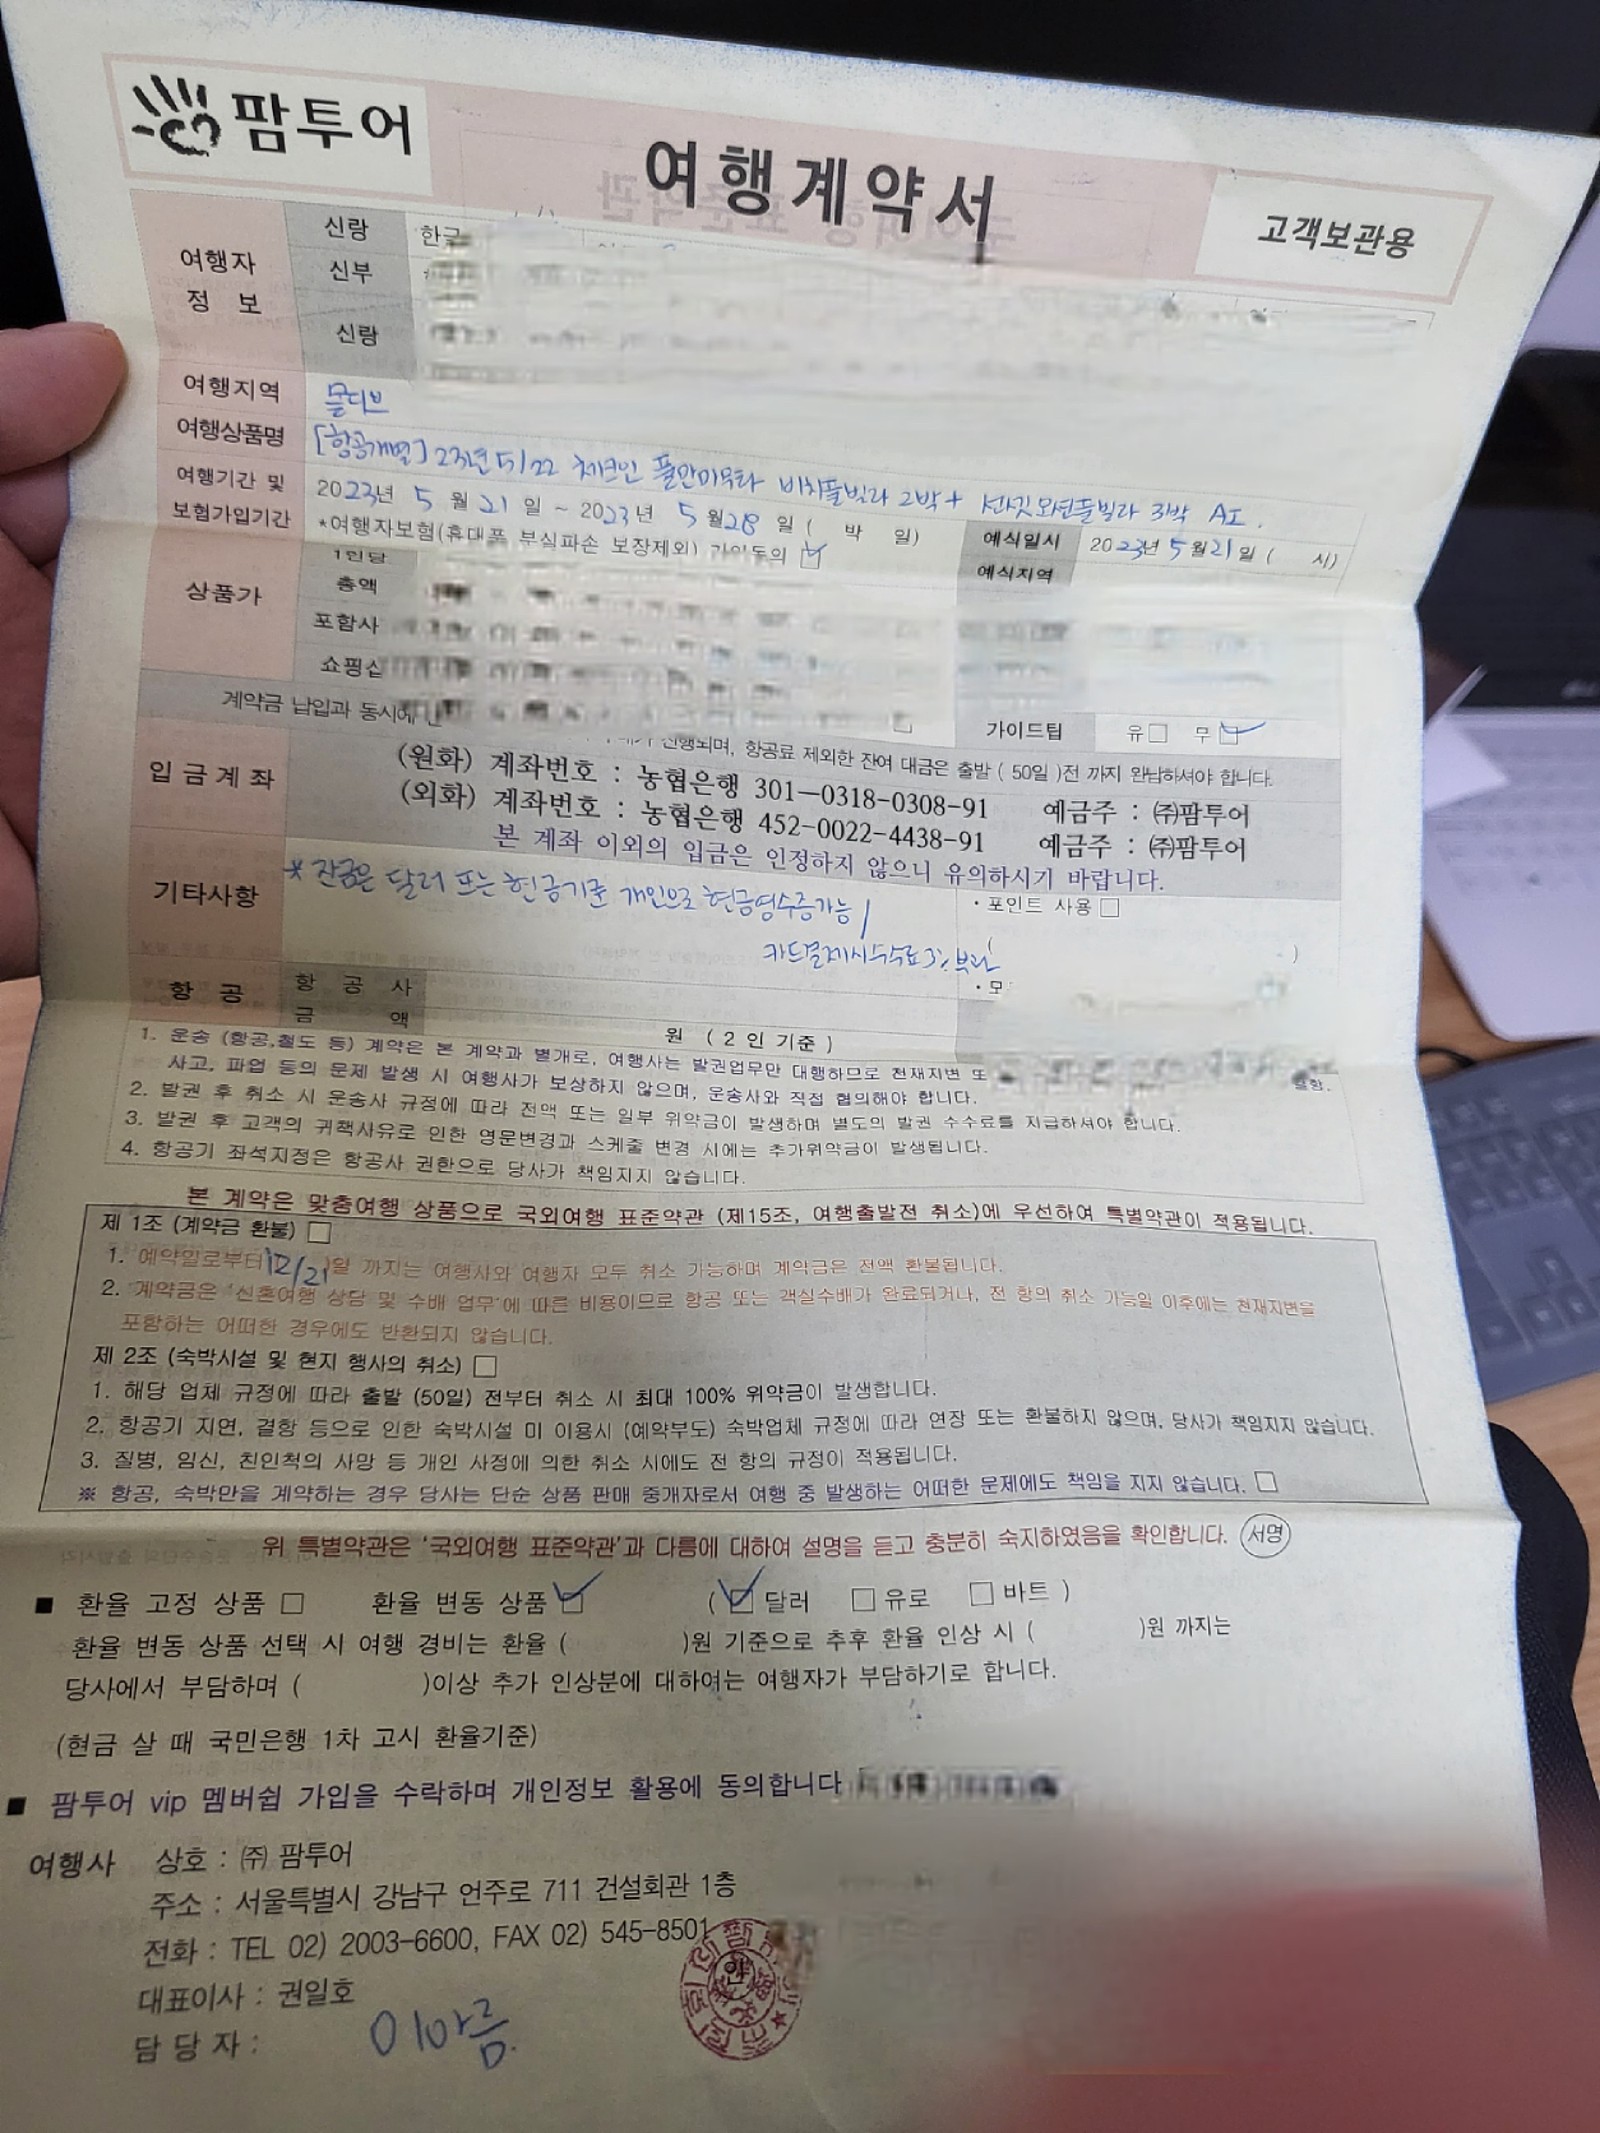 팜투어
여행계약서
고객보관용
여행자 정보
신랑
신부
신랑
여행지역 몰디브
여행상품명 [항공개별] 23년 5/22 체크인 풀만마무타 비치풀빌라 2박 + 선셋오션풀빌라 3박 AI.
여행기간 및 보험가입기간
2023년 5월 21일 ~ 2023년 5월 28일 ( 박 일)
*여행자보험(휴대폰 부실파손 보장제외) 가입동의
예식일시 2023년 5월 21일 ( 시)
예식지역
상품가
1인당
총액
포함사
쇼핑
계약금 납입과 동시에
가이드팁 유□ 무
진행되며, 항공료 제외한 잔여 대금은 출발 ( 50일 )전 까지 완납하셔야 합니다.
입금계좌
(원화) 계좌번호 : 농협은행 301-0318-0308-91 예금주 : ㈜팜투어
(외화) 계좌번호 : 농협은행 452-0022-4438-91 예금주 : ㈜팜투어
본 계좌 이외의 입금은 인정하지 않으니 유의하시기 바랍니다.
기타사항
* 잔금은 달러 또는 현금기준 개인으로 현금영수증가능 /
카드결제시 수수료 3% 부과
· 포인트 사용 □
항공
항공사
금액
원 (2인 기준)
1. 운송 (항공,철도 등) 계약은 본 계약과 별개로, 여행사는 발권업무만 대행하므로 천재지변 또
사고, 파업 등의 문제 발생 시 여행사가 보상하지 않으며, 운송사와 직접 협의해야 합니다.
2. 발권 후 취소 시 운송사 규정에 따라 전액 또는 일부 위약금이 발생하며 별도의 발권 수수료를 지급하셔야 합니다.
3. 발권 후 고객의 귀책사유로 인한 영문변경과 스케줄 변경 시에는 추가위약금이 발생됩니다.
4. 항공기 좌석지정은 항공사 권한으로 당사가 책임지지 않습니다.
본 계약은 맞춤여행 상품으로 국외여행 표준약관 (제15조, 여행출발전 취소)에 우선하여 특별약관이 적용됩니다.
제 1조 (계약금 환불) □
1. 예약일로부터 12/21일 까지는 여행사와 여행자 모두 취소 가능하며 계약금은 전액 환불됩니다.
2. 계약금은 '신혼여행 상담 및 수배 업무'에 따른 비용이므로 항공 또는 객실수배가 완료되거나, 전 항의 취소 가능일 이후에는 천재지변을
포함하는 어떠한 경우에도 반환되지 않습니다.
제 2조 (숙박시설 및 현지 행사의 취소) □
1. 해당 업체 규정에 따라 출발 (50일) 전부터 취소 시 최대 100% 위약금이 발생합니다.
2. 항공기 지연, 결항 등으로 인한 숙박시설 미 이용시 (예약부도) 숙박업체 규정에 따라 연장 또는 환불하지 않으며, 당사가 책임지지 않습니다.
3. 질병, 임신, 친인척의 사망 등 개인 사정에 의한 취소 시에도 전 항의 규정이 적용됩니다.
※ 항공, 숙박만을 계약하는 경우 당사는 단순 상품 판매 중개자로서 여행 중 발생하는 어떠한 문제에도 책임을 지지 않습니다. □
위 특별약관은 '국외여행 표준약관'과 다름에 대하여 설명을 듣고 충분히 숙지하였음을 확인합니다. 서명
■ 환율 고정 상품 □ 환율 변동 상품 ☑ ( ☑ 달러 □ 유로 □ 바트 )
환율 변동 상품 선택 시 여행 경비는 환율 ( )원 기준으로 추후 환율 인상 시 ( )원 까지는
당사에서 부담하며 ( )이상 추가 인상분에 대하여는 여행자가 부담하기로 합니다.
(현금 살 때 국민은행 1차 고시 환율기준)
■ 팜투어 vip 멤버쉽 가입을 수락하며 개인정보 활용에 동의합니다
여행사 상호 : ㈜ 팜투어
주소 : 서울특별시 강남구 언주로 711 건설회관 1층
전화 : TEL 02) 2003-6600, FAX 02) 545-8501
대표이사 : 권일호
담당자 : 이아름